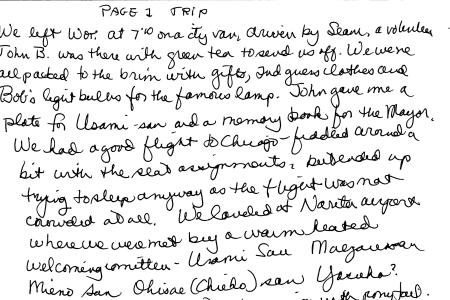 PAGE 1 TRIP
We left Wor. at 7:00 on a city van, driven by Sean, a volunteer
John B. was there with green tea to send us off. We were
all packed to the brim with gifts, 2nd guess clothes and
Bob's light bulbs for the famous lamp. John gave me a
plate for Usami-san and a memory book for the Mayor.
We had a good flight to Chicago - fiddled around a
bit with the seat assignments, but ended up
trying to sleep anyway as the flight was not
crowded at all. We landed at Narita airport
where we were met buy a warm heated
welcoming comittee - Usami San
Mieno San Chisae (Chieko) san Yasuko?
with ponytail.